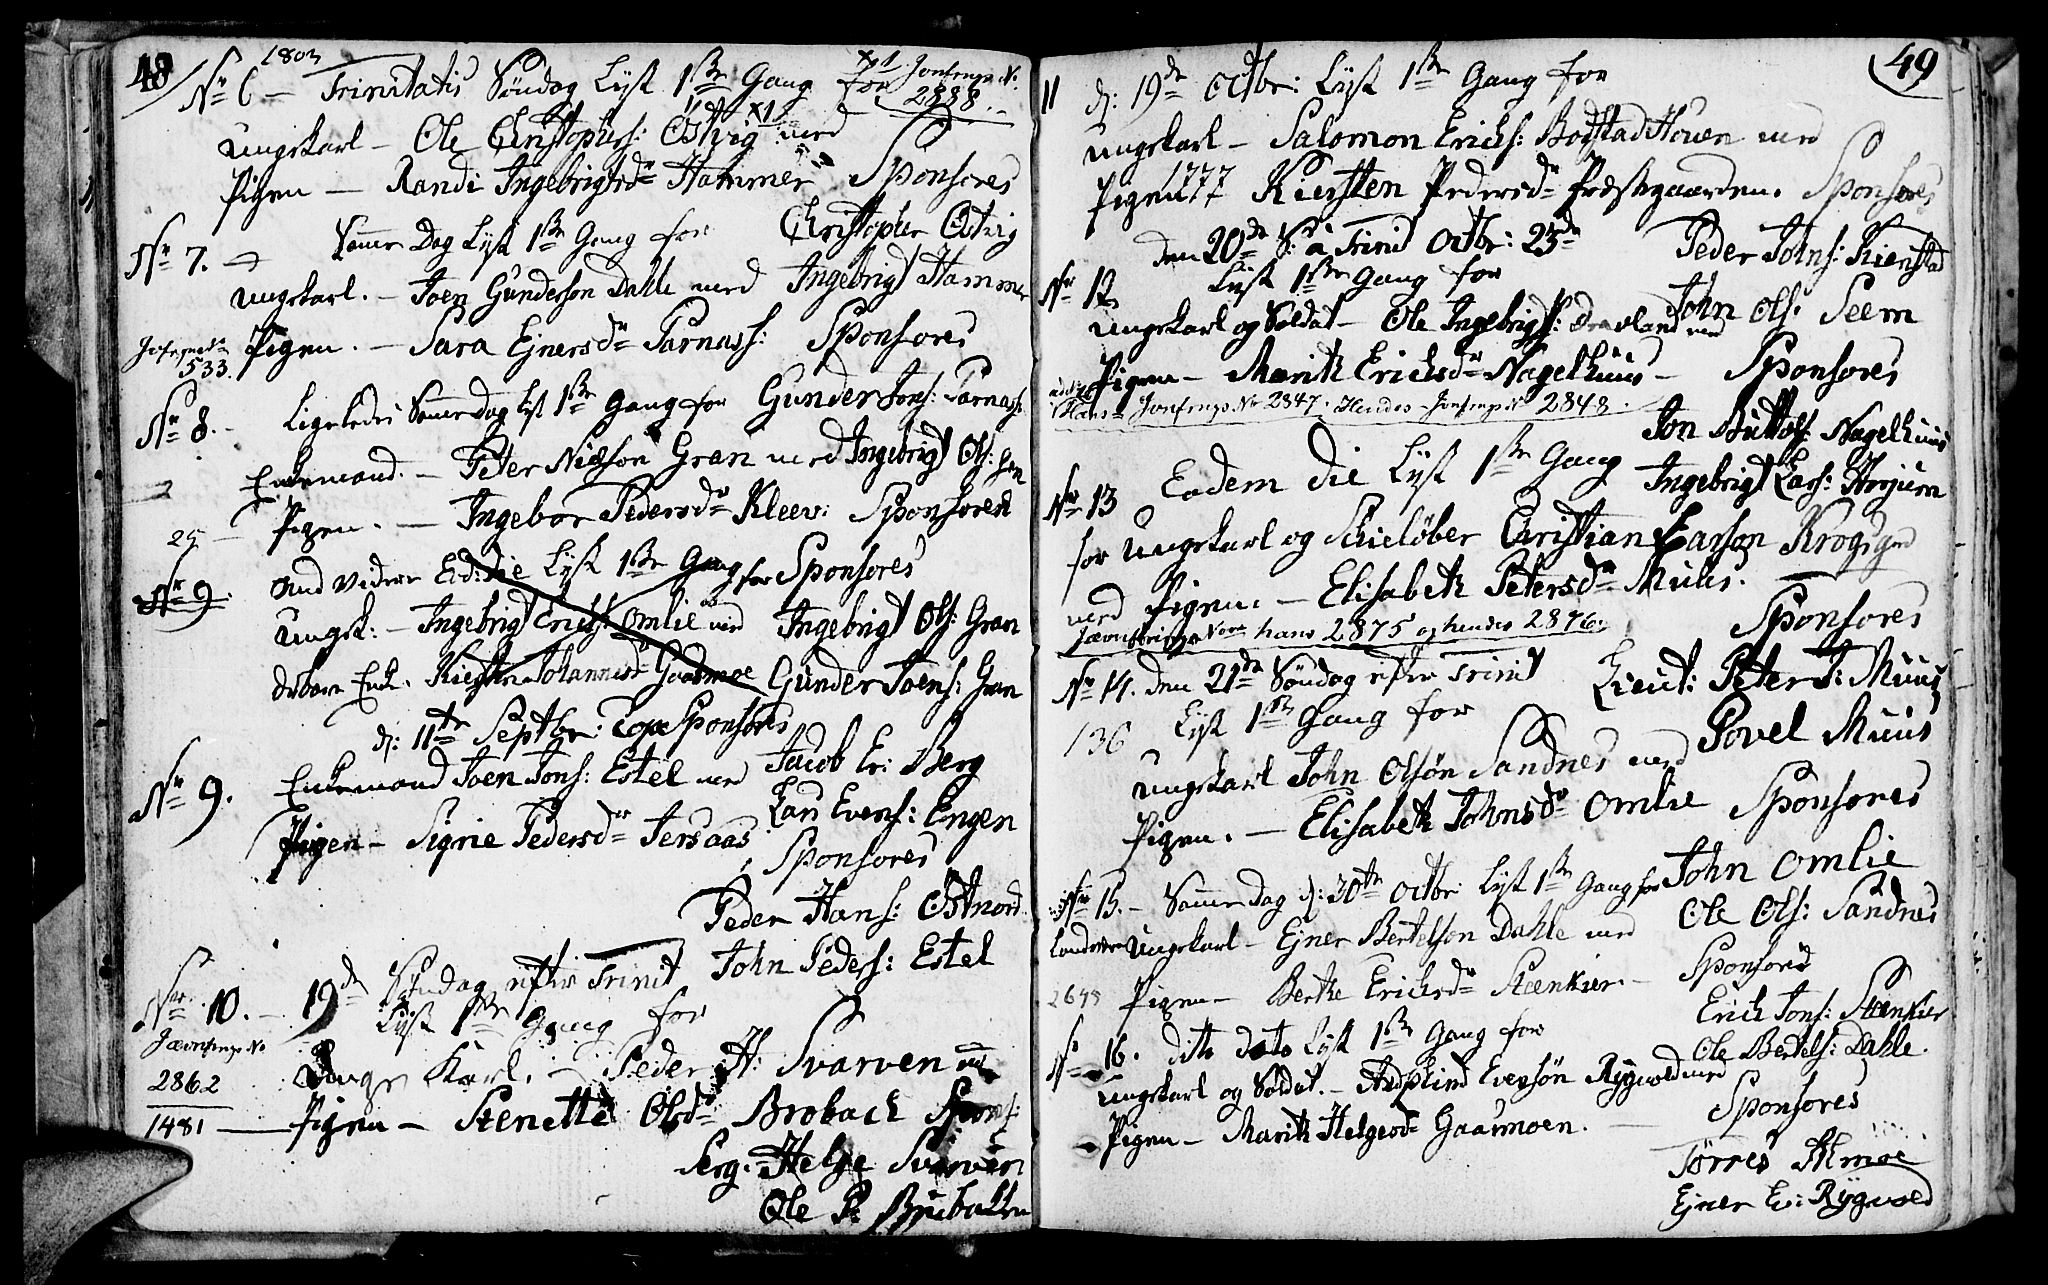 48
1803
Nr 6 — Trinitatis Söndag Lyst 1ste Gang for Jonfrngs No.
2888.
Ungekarl — Ole Christophers: Östvig med
Pigen — Randi Ingebrigtsdr Hammer Sponsores
Christopher Östvig
Nr 7. — Samme Dag Lyst 1ste Gang for
Ungekarl. — Joen Gunderson Dahle med Ingebrigt Hammer
Pigen. — Sara Ejnersdr Parnass: Sponsores
533.
Nr 8. — Ligeledes Samme Dag Lyst 1ste Gang for Gunder Jons: Parnass
Enkemand. — Peter Nielson Gran med Ingebrigt Ols:
25 — Pigen. — Ingebor Pedersdr Kleev: Sponsores
Nr 9. Eod: die Lyst 1ste Gang for Sponsores
Ungek: — Ingebrigt Erichs: Omlie med Ingebrigt Ols: Gran
Enke. Kiersten Johannesdr Gaasmoe Gunder Joens: Gran
d: 11te Septbr: Sponsores
Nr 9. Enkemand Joen Jons: Estel med Jacob Er: Berg
Lars Evens: Engen
Pigen — Sigrie Pedersdr Tersaas Sponsores
Peder Hans: Östnord
Nr 10. — 19de Söndag efter Trinit John Peders: Estel
Lyst 1ste Gang for
Jævnfrngs No
2862
Unge Karl. — Peder H: Svarven med
1481 — Pigen — Stenette Olsdr Brobach Spons:
Serg: Helge Svarven
Ole P: Brubakken
49
11 d: 19de Octbr: Lyst 1ste Gang for
Ungekarl — Salomon Erichs: Bodstad Houen med
1777
Pigen 177 Kiersten Pedersdr Præstegaarden. Sponsores
den 20de S: a Trinit Octbr: 23de Peder Johns: Kienstad
Nr 12 Lyst 1ste Gang for John Ols: Seem
Ungekarl og Soldat — Ole Ingebrigts: Dravland med
Pigen — Marith Erichsdr Nagelhuus — Sponsores
Hans Jonfrngs Nr 2847. Hendes Jonfrngs No 2848.
Jon Buttols: Nagelhuus
Nr 13 Eodem die Lyst 1ste Gang Ingebrigt Lars: Horjum
for Ungekarl og Skieløber Christian Larson Krogsgrd
med Pigen. — Elisabeth Petersdr Muus.
Jævnførings Nore hans 2875 og hendes 2876. Sponsores
Nr 14. den 21de Söndag efter Trinit Lieut: Peter T: Muus
136 Lyst 1ste Gang for Povel Muus
Ungekarl John Olsön Sandnes med
Pigen. — Elisabeth Johnsdr Omlie Sponsores
John Omlie
Nr 15. — Samme Dag d: 30te Octbr Lyst 1ste Gang for
Ole Ols: Sandnes
Ungekarl — Ejner Bertelson Dahle med
Sponsores
Pigen — Berthe Erichsdr Steenkier. —
Erich Jons: Steenkier
Nr 16. dito dato Lyst 1ste Gang for
Ole Bertels: Dahle.
Ungekarl og Soldat. — Evensön Rygvold med
Sponsores
Pigen — Marith Helgesdr Gaasmoen. —
Törres Almoe
Ejner Ev: Rygvold